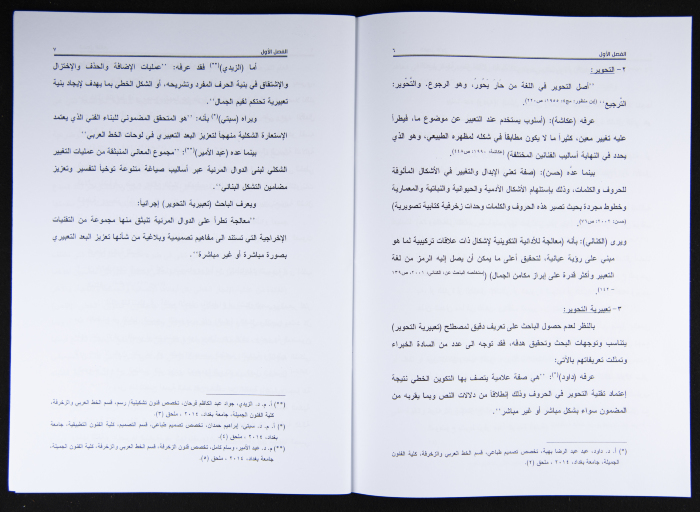 الفصل الأول
٦
٢- التحوير:
"أصل التحوير في اللغة من حَارَ يَحُورُ، وهو الرجوع. والتَّحْوير:
الترجيع" (ابن منظور: مج٤، ١٩٥٥، ص٢٢٠).
عرفه (عكاشة): (أسلوب يستخدم عند التعبير عن موضوع ما، فيطرأ
عليه تغيير معين، كثيراً ما لا يكون مطابقاً في شكله لمظهره الطبيعي، وهو الذي
يحدد في النهاية أساليب الفنانين المختلفة) (عكاشة: ١٩٩٠، ص٤٤٥).
بينما عدّه (حسن): (صفة تعني الإبدال والتغيير في الأشكال المألوفة
للحروف والكلمات، وذلك بإستلهام الأشكال الآدمية والحيوانية والنباتية والمعمارية
وخطوط مجردة بحيث تصير هذه الحروف والكلمات وحدات زخرفية كتابية تصويرية)
(حسن: ٢٠٠٢، ص٧٦).
ويرى (الكناني): بأنه (معالجة للأدائية التكوينية لإشكال ذات علاقات تركيبية لما هو
مبني على رؤية عيانية، لتحقيق أعلى ما يمكن أن يصل إليه الرمز من لغة
التعبير وأكثر قدرة على إبراز مكامن الجمال) (استخلصه الباحث عن: الكناني، ٢٠٠١، ص١٣٩
-١٤٢).
٣- تعبيرية التحوير:
بالنظر لعدم حصول الباحث على تعريف دقيق لمصطلح (تعبيرية التحوير)
يتناسب وتوجهات البحث وتحقيق هدفه، فقد توجه الى عدد من السادة الخبراء
وتمثلت تعريفاتهم بالآتي:
عرفه (داود)(*): "هي صفة علامية يتصف بها التكوين الخطي نتيجة
إعتماد تقنية التحوير في الحروف وذلك إنطلاقاً من دلالات النص وبما يقربه من
المضمون سواء بشكل مباشر أو غير مباشر".
(*) أ. د. داود، عبد الرضا بهية، تخصص تصميم طباعي، قسم الخط العربي والزخرفة، كلية الفنون
الجميلة، جامعة بغداد، ٢٠١٤، ملحق (٢).
الفصل الأول
٧
أما (الزيدي)(**) فقد عرفه: "عمليات الإضافة والحذف والإختزال
والإشتقاق في بنية الحرف المفرد وتشريحه، أو الشكل الخطي بما يهدف لإيجاد بنية
تعبيرية تحتكم لقيم الجمال".
ويراه (سبتي)(*) بأنه: "هو المتحقق المضموني للبناء الفني الذي يعتمد
الإستعارة الشكلية منهجاً لتعزيز البعد التعبيري في لوحات الخط العربي"
بينما عده (عبد الأمير)(**): "مجموع المعاني المنبثقة من عمليات التغيير
الشكلي لبنى الدوال المرئية عبر أساليب صياغة متنوعة توخياً لتفسير وتعزيز
مضامين التشكل البنائي".
ويعرف الباحث (تعبيرية التحوير) إجرائياً:
"معالجة تطرأ على الدوال المرئية تنبثق منها مجموعة من التقنيات
الإخراجية التي تستند الى مفاهيم تصميمية وبلاغية من شأنها تعزيز البعد التعبيري
بصورة مباشرة أو غير مباشرة".
(**) أ. م. د. الزيدي، جواد عبد الكاظم فرحان، تخصص فنون تشكيلية/ رسم، قسم الخط العربي والزخرفة،
كلية الفنون الجميلة، جامعة بغداد، ٢٠١٤، ملحق (٣).
(*) أ. م. د. سبتي، إبراهيم حمدان، تخصص تصميم طباعي، قسم التصميم، كلية الفنون التطبيقية، جامعة
بغداد، ٢٠١٤، ملحق (٤).
(**) م. د. عبد الأمير، وسام كامل، تخصص فنون الزخرفة، قسم الخط العربي والزخرفة، كلية الفنون الجميلة،
جامعة بغداد، ٢٠١٤، ملحق (٥).